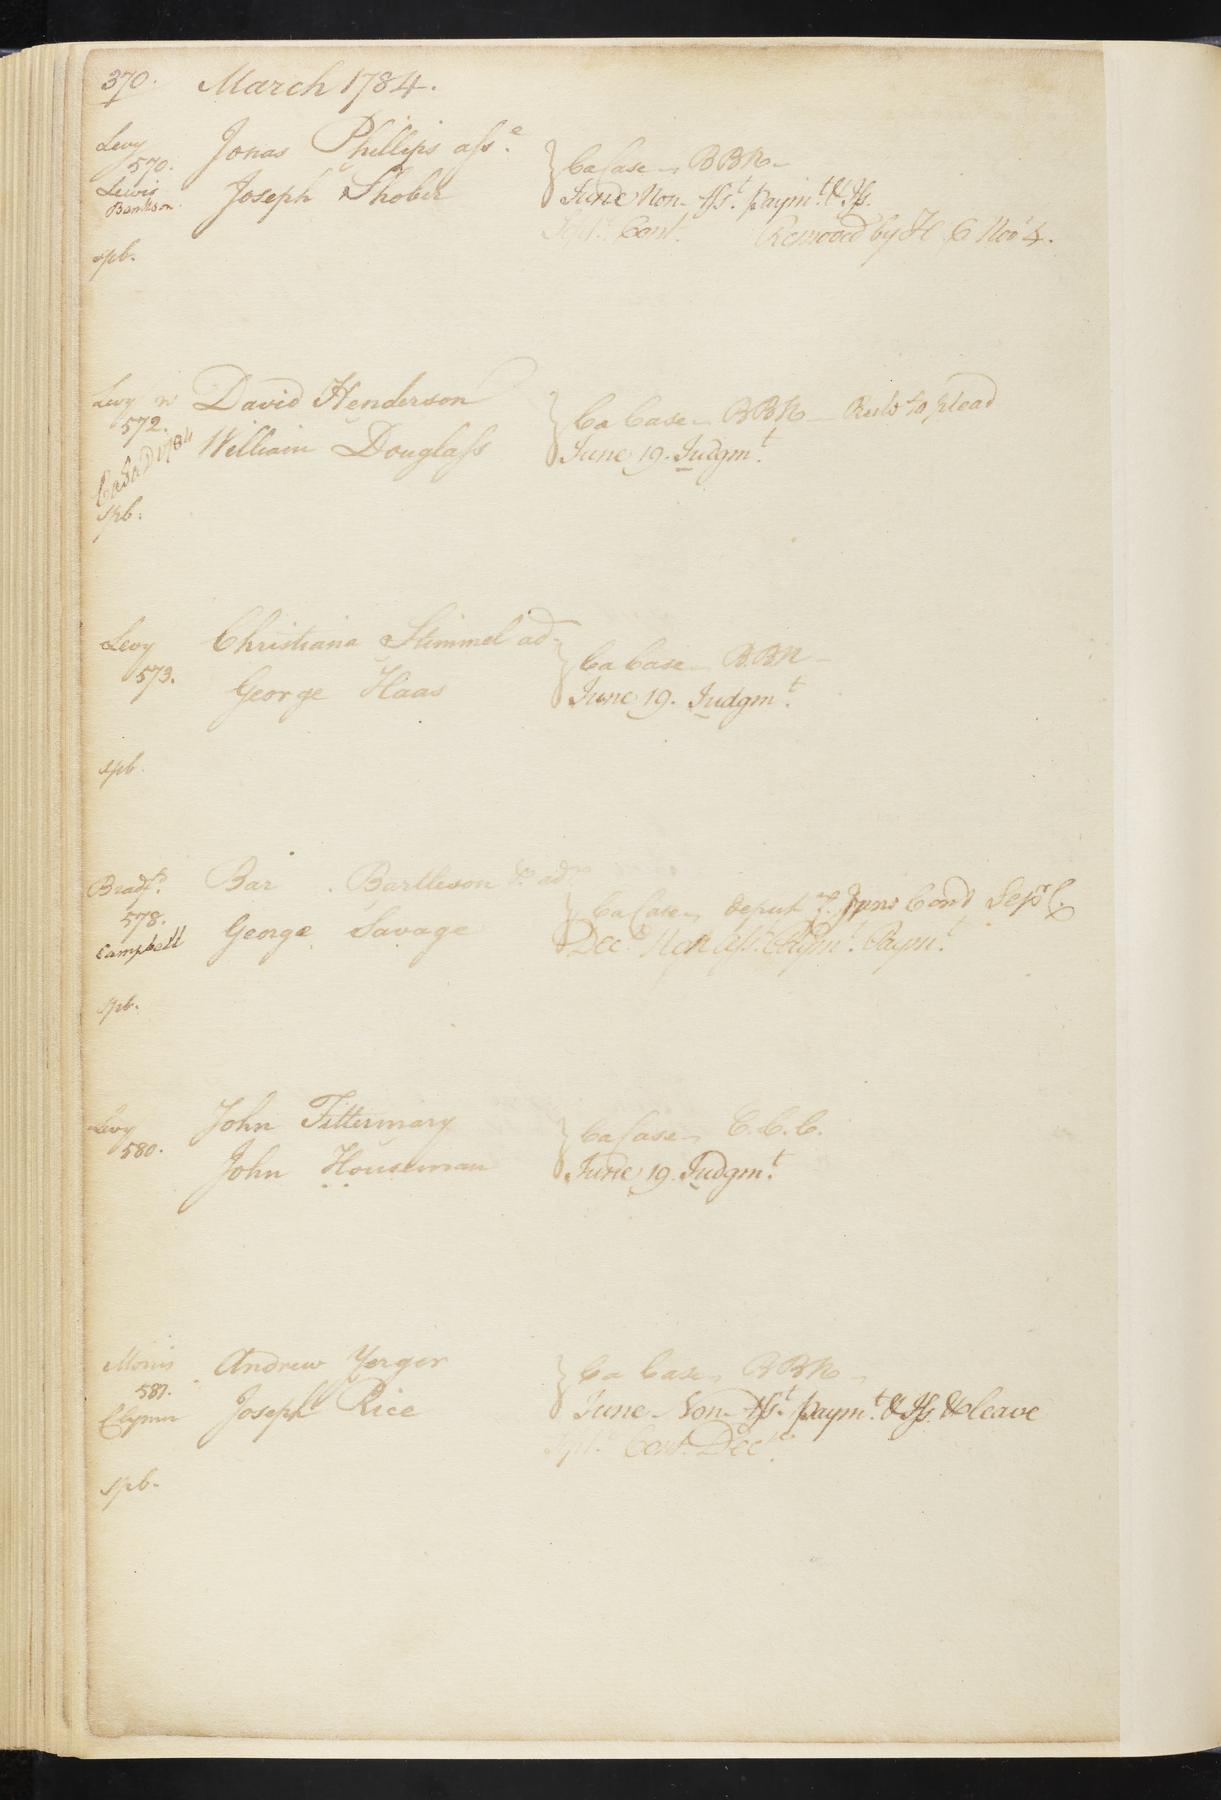 370. March 1784.
Levy Jonas Phillips ass.e
570. Ca Case BBR
Lewis Joseph Shober June Non Ass.t paym.t & Iss.
Bankson
Sept.r Cont. Removed by H C No 4.
spb.
Levy David Henderson
572. Ca Case BBR Rule to plead
William Douglass June 19. Judgm.t
Ca Sa D 1784
spb.
Levy Christiana Stimmel ad
573. Ca Case BBR
George Haas June 19. Judgm.t
spb.
Bradf.d Bar Bartleson & ad
578. Ca Case Cond Sep.r
Campbell George Savage Dec.r Non Ass. Paym.t
spb.
Levy John Fittermary
580. Ca Case C.C.C.
John Houseman June 19. Judgm.t
Morris Andrew Yerger Ca Case BBR
587.
Clymer Joseph Rice June Non Ass.t paym.t & Iss & leave
Sept.r Cont. Dec.r
spb.